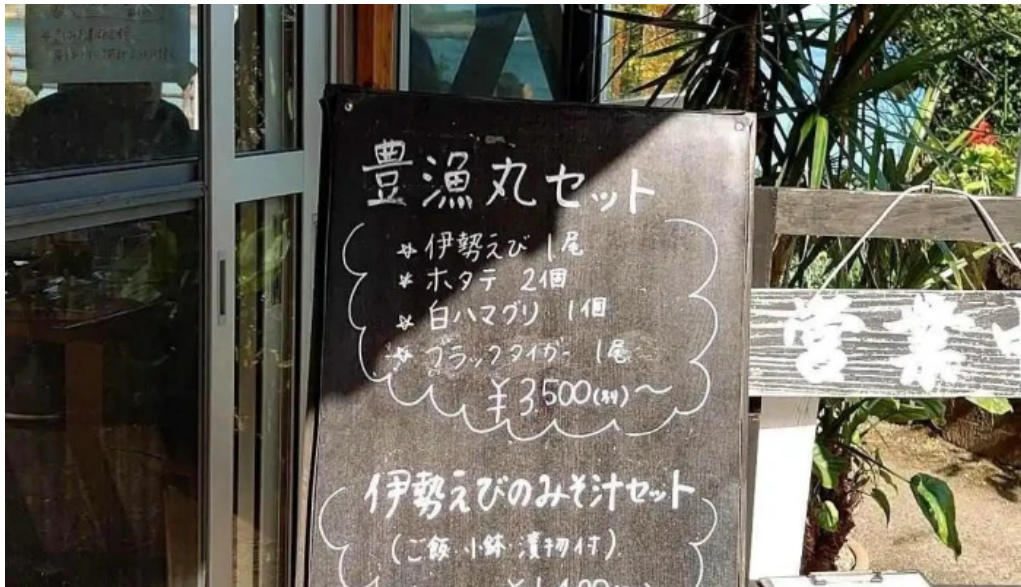 豊漁丸セット
* 伊勢えび 1尾
* ホタテ 2個
* 白ハマグリ 1個
* ブラックタイガー 1尾
¥3,500(別)〜
伊勢えびのみそ汁セット
(ご飯・小鉢・漬物付)
営業中